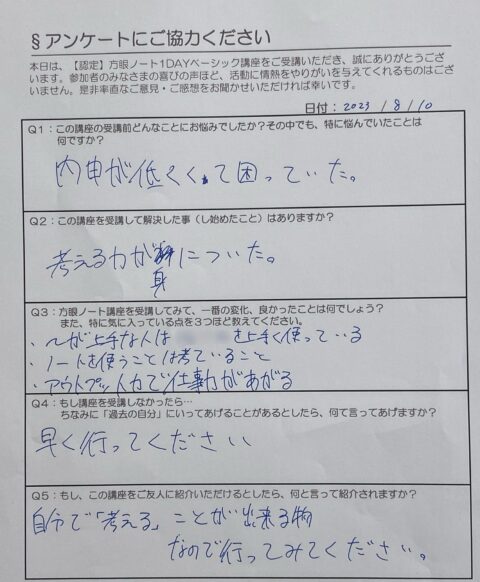 §アンケートにご協力ください
本日は、【認定】方眼ノート1DAYベーシック講座をご受講いただき、誠にありがとうござ
います。参加者のみなさまの喜びの声ほど、活動に情熱をやりがいを与えてくれるものはござ
いません。是非率直なご意見・ご感想をお聞かせいただければ幸いです。
日付: 2023 / 8 / 10
Q1:この講座の受講前どんなことにお悩みでしたか?その中でも、特に悩んでいたことは
何ですか?
内申が低くくて困っていた。
Q2:この講座を受講して解決した事(し始めたこと)はありますか?
考える力が身についた。
Q3:方眼ノート講座を受講してみて、一番の変化、良かったことは何でしょう?
また、特に気に入っている点を3つほど教えてください。
・ が上手な人は を上手く使っている
・ノートを使うことは考ていること
・アウトプット力で仕事力があがる
Q4:もし講座を受講しなかったら…
ちなみに「過去の自分」にいってあげることがあるとしたら、何て言ってあげますか?
早く行ってください
Q5:もし、この講座をご友人に紹介いただけるとしたら、何と言って紹介されますか?
自分で「考える」ことが出来る物
なので行ってみてください。